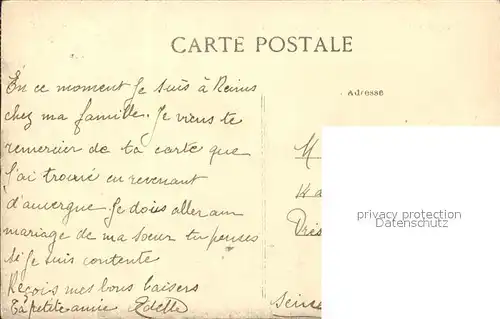 CARTE POSTALE
En ce moment Je suis à Reims
chez ma famille. Je viens te
remercier de ta carte que
j'ai trouvé en revenant
d'auvergne Je dois aller au
mariage de ma sœur tu penses
si je suis contente
Reçois mes bons baisers
Ta petite amie Odette
Adresse
M
14 a
Près
Seine
privacy protection
Datenschutz